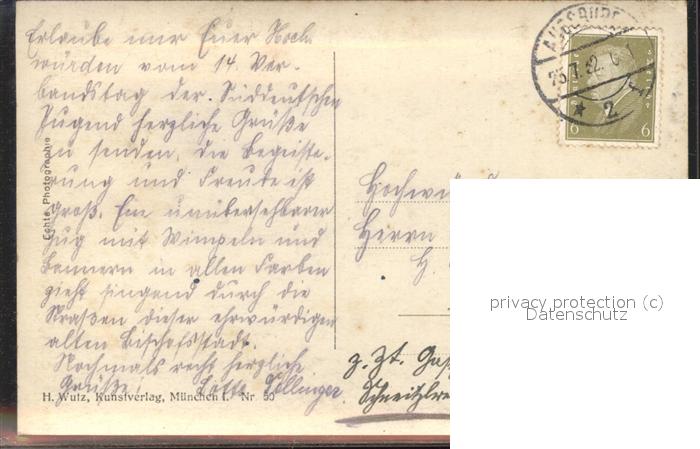 Erlaube mir Euer Hoch-
würden vom 14. Ver-
bandstag der Süddeutschen
Jugend herzliche Grüße
zu senden, die Begeiste-
rung und Freude ist
groß. Ein unübersehbarer
Zug mit Wimpeln und
Bannern in allen Farben
zieht singend durch die
Straßen dieser ehrwürdigen
alten Bischofsstadt.
Nochmals recht herzliche
Grüße! Lotte
H. Wutz, Kunstverlag, München I. Nr. 50
Echte Photographie
AUGSBURG
2
6 6
Herrn
H.
z. Zt.
privacy protection (c)
Datenschutz